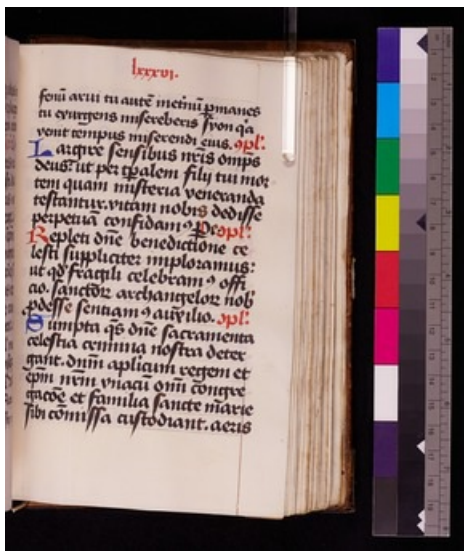 lxxxvi.
fenū arui tu autē metinū ꝑmanes
tu exurgens misereberis syon qa
venit tempus miserendi eius. ꝯpl'.
Largire sensibus nr̄is omps
deus: ut per tꝑalem filij tui mor
tem quam misteria veneranda
testantur. vitam nobis dedisse
perpetuā confidamꝰ P ꝯpl'.
Repleti dn̄e benedictione ce
lesti suppliciter imploramus:
ut qd' fragili celebramꝰ offi
cio. sanctoꝝ archangeloꝝ nob
ꝓdesse sentiamꝰ auxilio. ꝯpl'.
Sumpta qs dn̄e sacramenta
celestia crimina nostra deter
gant. dnm̄ aplicum regem et
ep̄m nrm̄ vnacū om̄i congre
gacōe et familia sancte marie
sibi cōmissa custodiant. aeris